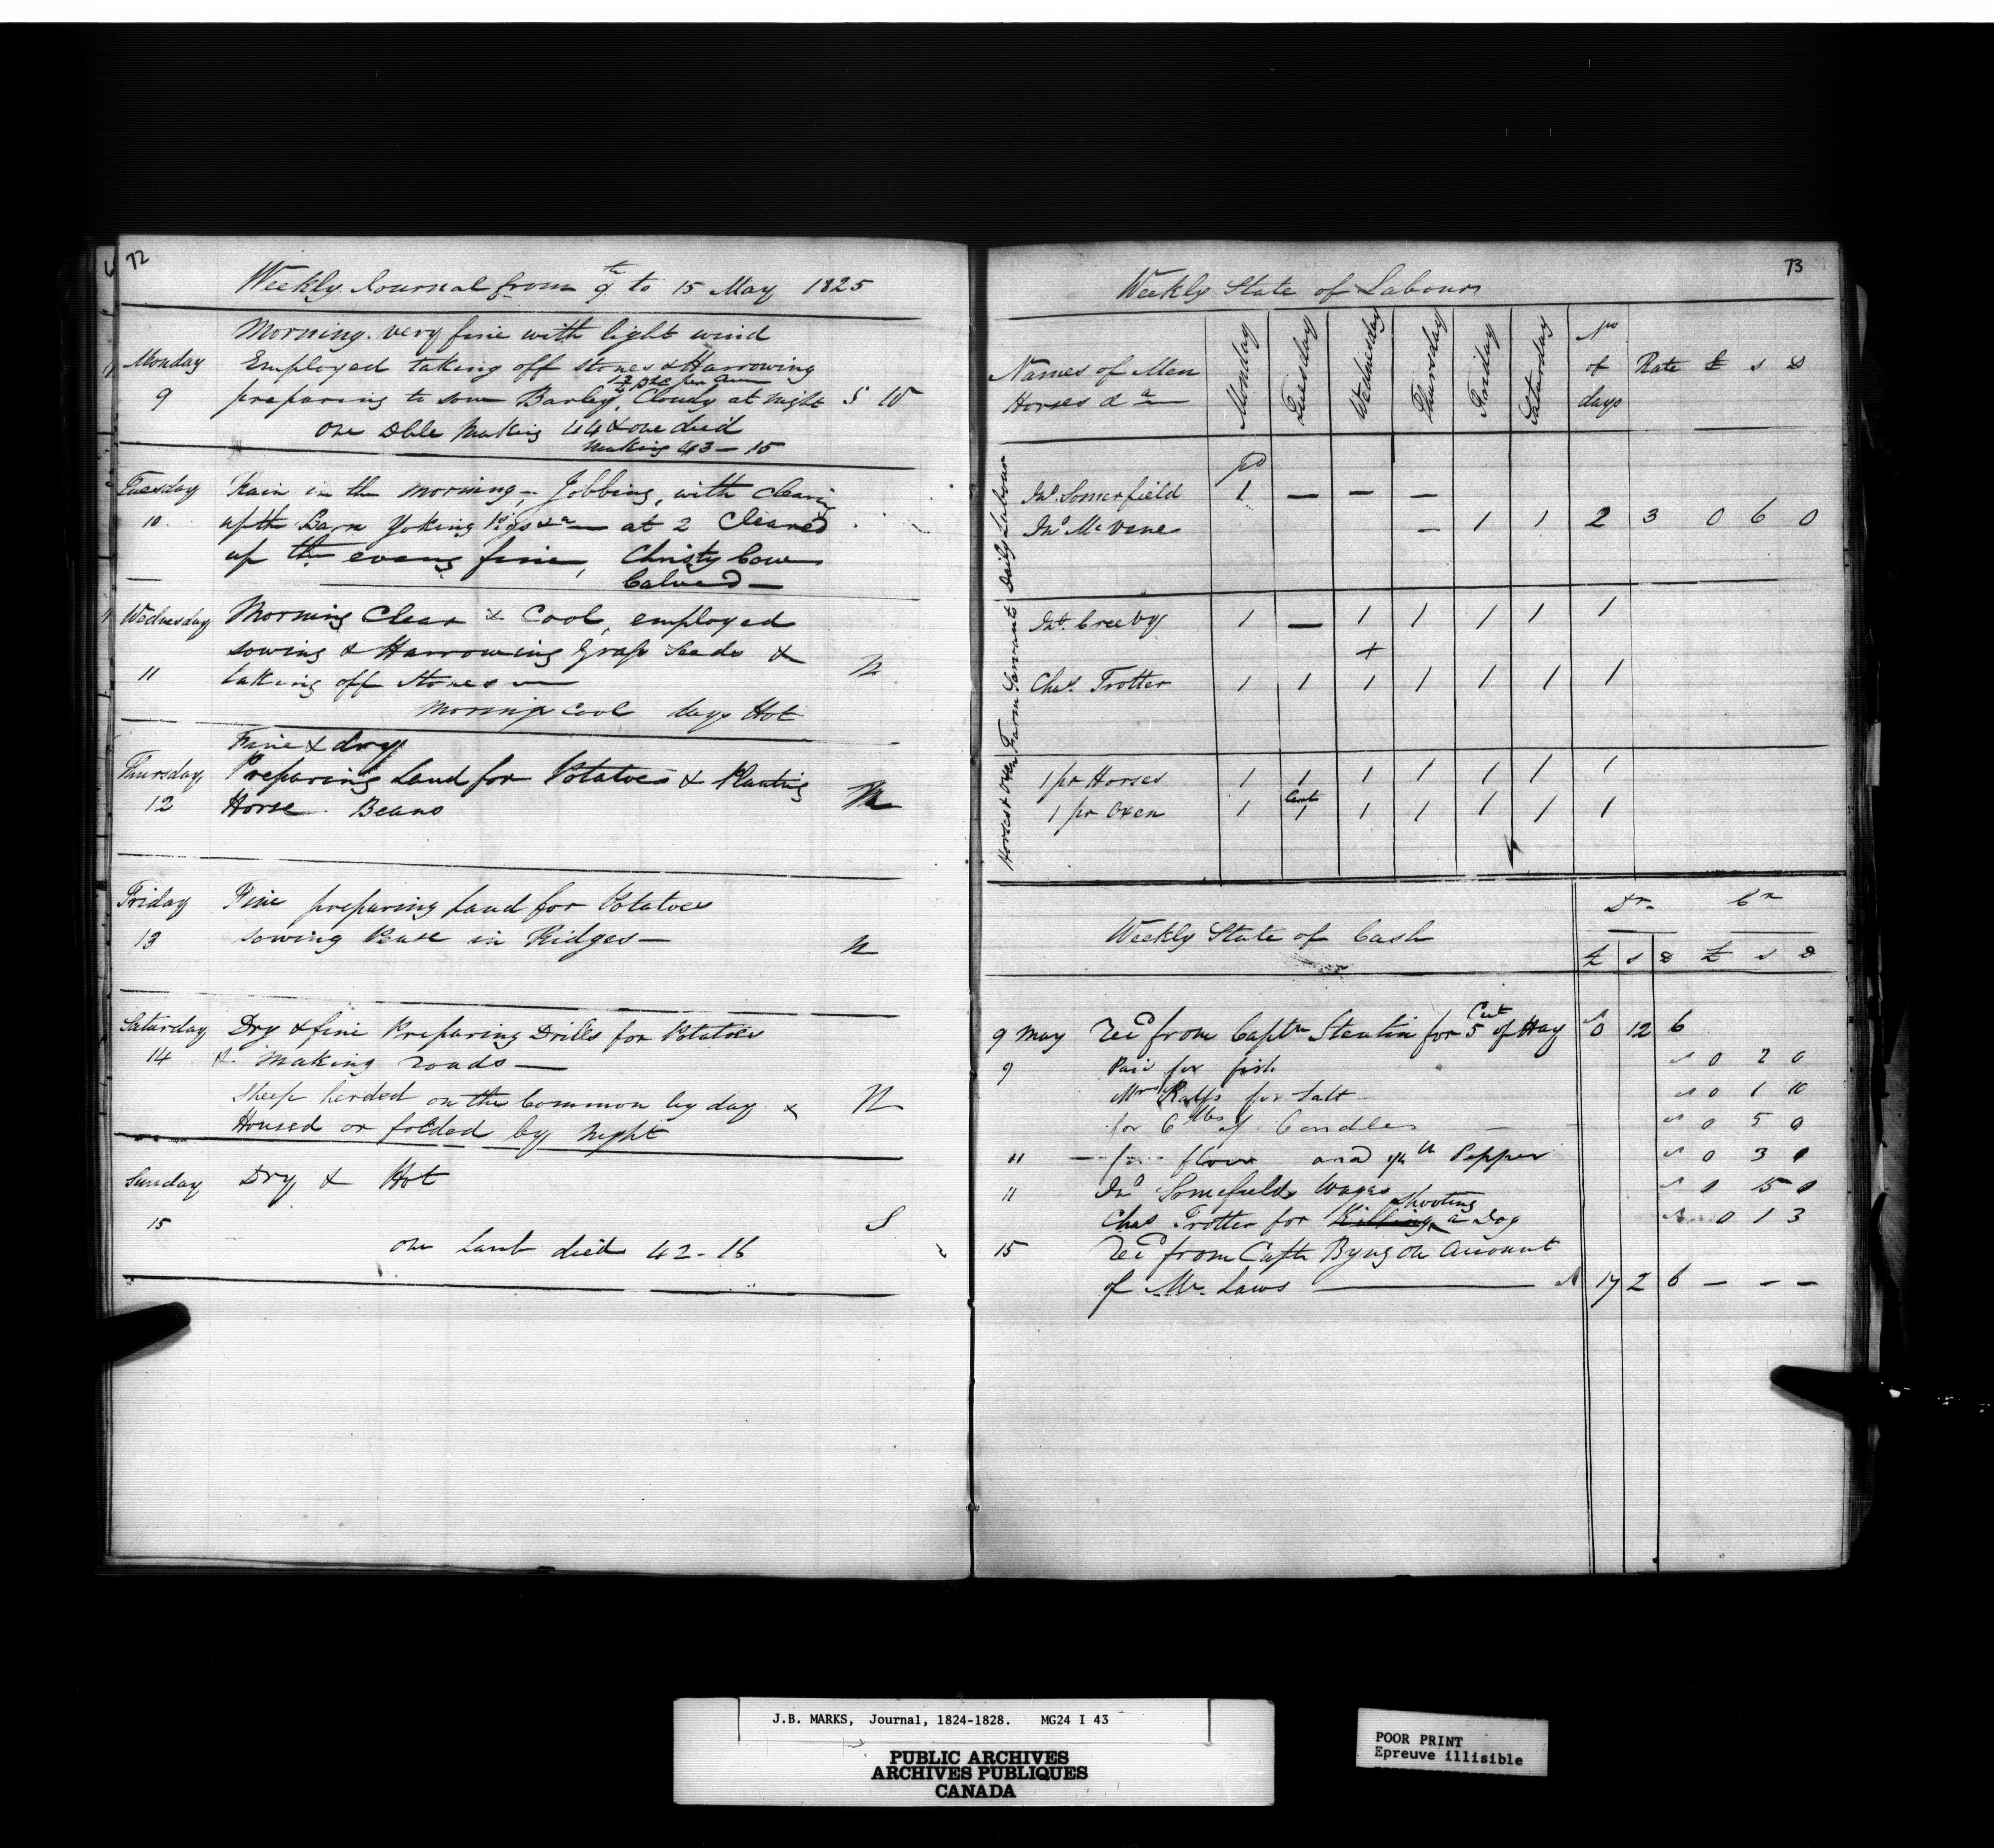 72
Weekly Journal from 9th to 15 May 1825
Morning very fine with light wind
Monday Employed taking off stones & Harrowing
9 preparing to sow Barley, Cloudy at night S 10
one Dble Making 44 & one died
making 43 - 15
Tuesday Rain in the morning - Jobbing, with cleaning
10 up the Barn Yoking Pigs &a — at 2 Cleared
up the eveng fine, Christy Cow
Calved —
Wednesday Morning Clear & Cool, employed
sowing & Harrowing Grass Seeds &
11 taking off stones — N
Morning Cool days Hot
Fine & dry
Thursday Preparing Land for Potatoes & Planting
12 Horse Beans N
Friday Fine preparing Land for Potatoes
13 sowing Pease in Ridges — N
Saturday Dry & fine Preparing Drills for Potatoes
14 & making roads —
Sheep herded on the Common by day & N
Housed or folded by Night
Sunday Dry & Hot
15 S
one Lamb died 42 - 16
73
Weekly State of Labour
Names of Men Horses &a Monday Tuesday Wednesday Thursday Friday Saturday No of days Rate £ s D
Daily Labour
pd
Jno. Somerfield 1 — — —
Jno McVene — 1 1 2 3 0 6 0
Farm Servants
Jno. Creeby 1 — 1 1 1 1 1
+
Chas. Trotter 1 1 1 1 1 1 1
Horses & Oxen
1 pr Horses 1 1 1 1 1 1 1
1 pr Oxen 1 1 1 1 1 1 1
Dr. Cr
Weekly State of Cash
£ s D £ s D
9 May Recd from Captn for 5 Cwt of Hay 0 12 6
9 Paid for fish 0 2 0
Mrs Ralfs for Salt 0 1 10
for 6 lbs of Candles — 0 5 0
11 — for flour and Pepper 0 3 0
11 Jno Somefields Wages 0 15 0
Chas Trotter for Killing Shooting a Dog 0 1 3
15 Recd from Captn Byng on Account
of Mr. Laws — 17 2 6 — — —
J.B. MARKS, Journal, 1824-1828. MG24 I 43
PUBLIC ARCHIVES
ARCHIVES PUBLIQUES
CANADA
POOR PRINT
Epreuve illisible